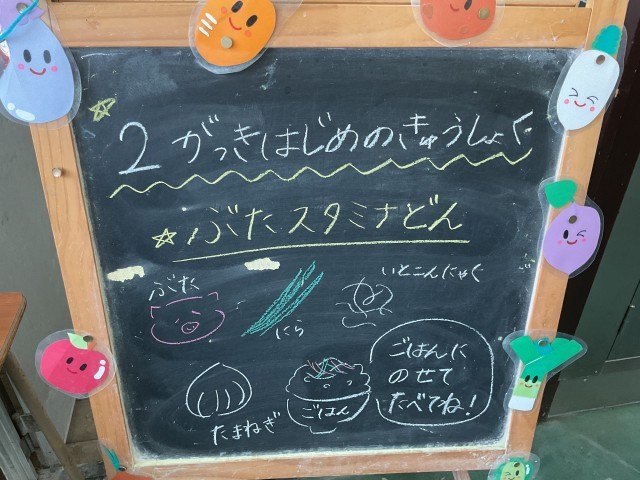 2がっきはじめのきゅうしょく
☆ぶたスタミナどん
ぶた
にら
いとこんにゃく
たまねぎ
ごはん
ごはんに
のせて
たべてね!